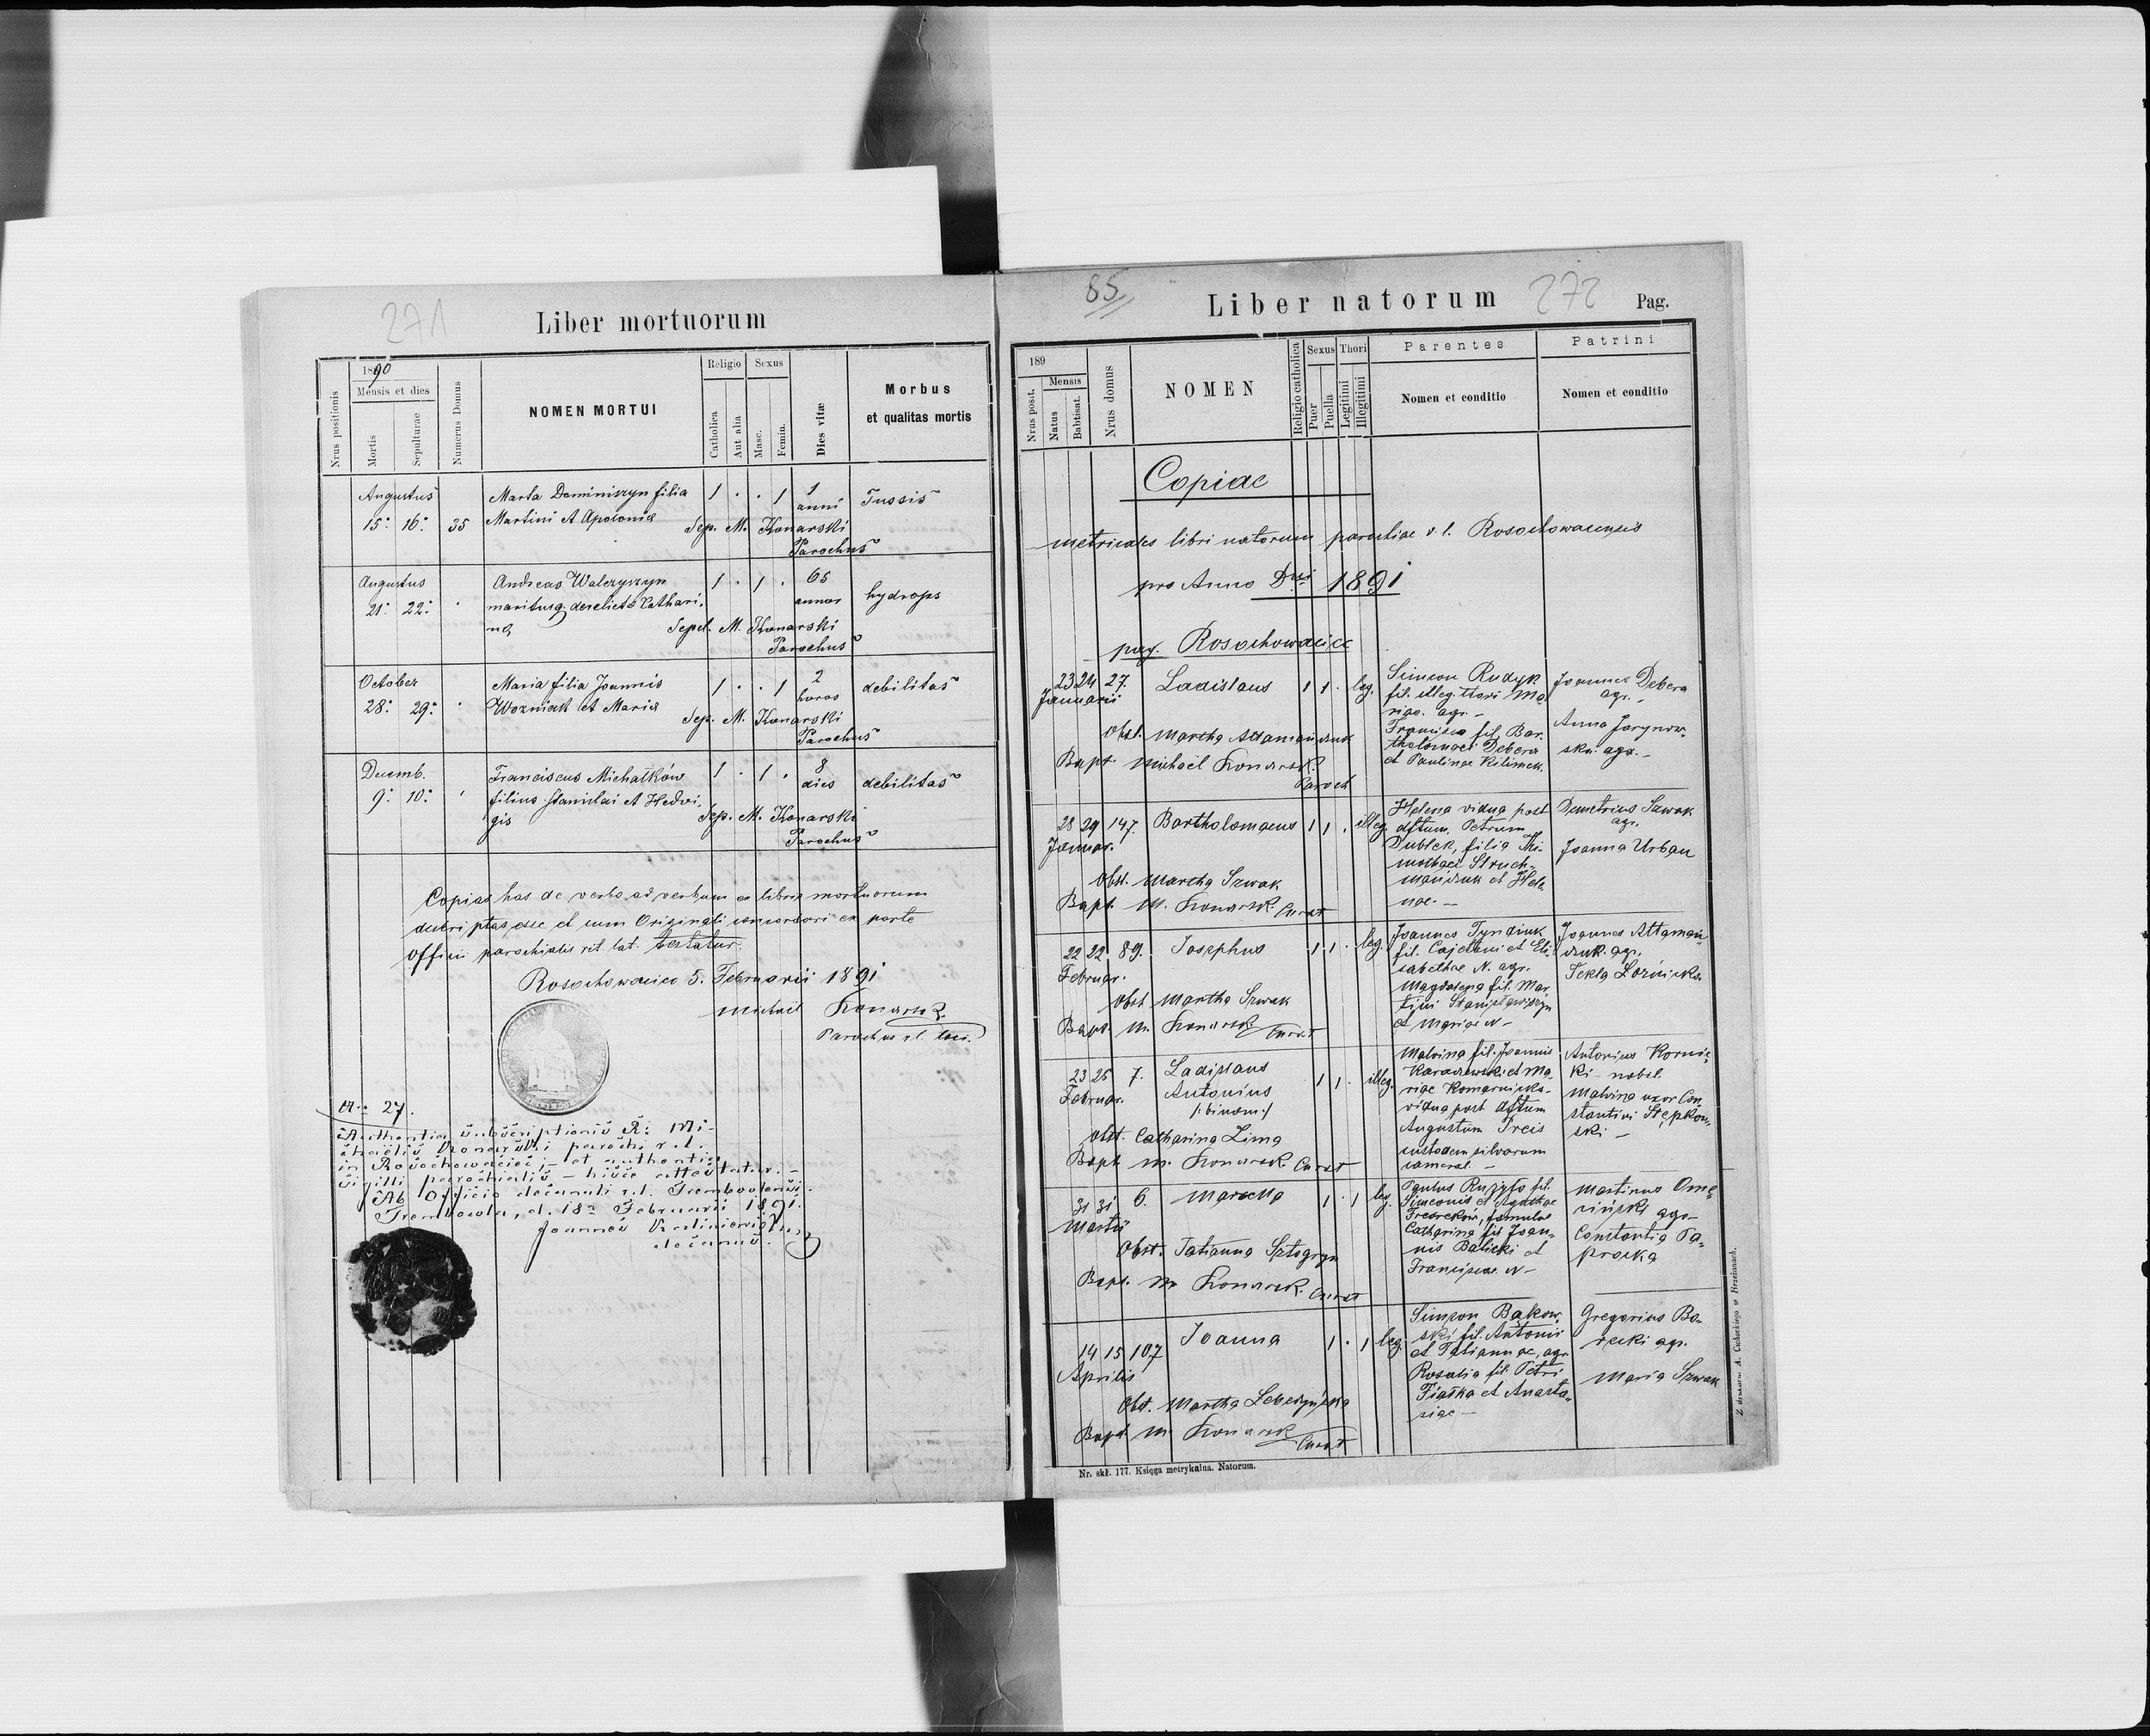 271
Liber mortuorum
Nrus positionis
1890
Mensis et dies
Mortis
Sepulturae
Numerus Domus
NOMEN MORTUI
Religio
Catholica
Aut alia
Sexus
Masc.
Femin.
Dies vitæ
Morbus
et qualitas mortis
Augustus Marta Deminiszyn filia 1 . . 1 1 anni Tussis
15: 16: 35 Martini et Apolonia
Sep. M. Konarski
Parochus
Augustus Andreas Walczyszyn 1 . 1 . 65 annor hydrops
21: 22: maritusq derelicta Kathari-
na Sepel. M. Konarski
Parochus
October Maria filia Joannis 1 . . 1 2 horas debilitas
28: 29: Wozniak et Maria
Sep. M. Konarski
Parochus
Decemb. Franciscus Michałków 1 . 1 . 8 dies debilitas
9: 10: filius Stanislai et Hedvi-
gis Sep. M. Konarski
Parochus
Copias has de verbo ad verbum ex libris mortuorum
descriptas esse et cum Originali concordari ex parte
Officii parochialis rit. lat. testatur.
Rosochowaciec 5. Februarii 1891
Michael Konarski
Parochus r.l. loci.
27.
Authentia subscriptionis R: Mi-
chaëlis Konarski parochi r.l.
in Rosochowaciec, - et authentia
sigilli parochialis - hisce attestatur. -
Ab Officio decanali r.l. Trembovlensi.
Trembowla, d. 18 Februarii 1891.
Joannes
decanus.
85
Liber natorum
272
Pag.
189
Nrus posit.
Mensis
Natus
Babtisat.
Nrus domus
NOMEN
Religio catholica
Sexus
Puer
Puella
Thori
Legitimi
Illegitimi
Parentes
Nomen et conditio
Patrini
Nomen et conditio
Copiae
metricales libri natorum parochiae r. l. Rosochowacensis
pro Anno Dni 1891
pag. Rosochowaciec
23 24 27. Ladislaus 1 1 . leg.
Januarii
Obst. Martha Attamańczuk
Bapt. Michael Konarski
Paroch
Simeon Rudyk
fil. illeg. thori Ma-
riae. agr. -
Francisca fil. Bar-
tholomaei Debera
et Paulinae Kilimek.
Joannes Debera
agr. -
Anna Jarynow-
ska agr. -
28 29 147. Bartholomaeus 1 1 . illeg.
Januar.
Obst. Martha Szwak
Bapt. M. Konarski Curat
Helena vidua post
dftum. Petrum
Dubłek, filia Ti-
mothaei Struch-
mańczuk et Hele-
nae. -
Demetrius Szwak
agr.
Joanna Urban
22 22 89. Josephus 1 1 . leg.
Februar.
Obst. Martha Szwak
Bapt. M. Konarski Curat
Joannes Tyndiuk
fil. Cajetani et Eli-
sabethae N. agr.
Magdalena fil. Mar-
tini Stanisławiszyn
et Mariae N -
Joannes Attamań-
czuk. agr.
Tekla Łozińska
23 25 7. Ladislaus 1 1 . illeg.
Februar. Antonius
/: binom :/
Obst. Catharina Lima
Bapt. M. Konarski Curat
Malvina fil. Joannis
Karaczewski et Ma-
riae Komarnicka -
vidua post dftum
Augustum Treis
custodem silvarum
cameral. -
Antonius Kornic-
ki - nobil.
Malvina uxor Con-
stantini Stępkow-
ski -
31 31 6. Marcella 1 . 1 leg.
Martii
Obst. Tatianna Sztogryn
Bapt. M. Konarski Curat
Paulus
Simeonis et Agathae
famulus
Catharina fil. Joan-
nis Balicki et
Franciscae N -
Martinus Ome-
ciński agr. -
Constantia Pa-
procka
14 15 107 Joanna 1 . 1 leg.
Aprilis
Obst. Martha Lebedyńska
Bapt. M. Konarski Curat
Simeon Bakow-
ski fil. Antonii
et Tatiannae, agr.
Rosalia fil. Petri
Fiałka et Anasta-
siae -
Gregorius Bo-
recki agr.
Maria Szwak
Nr. skł. 177. Księga metrykalna. Natorum.
Z drukarni A. Cachockiego w Brzeżanach.